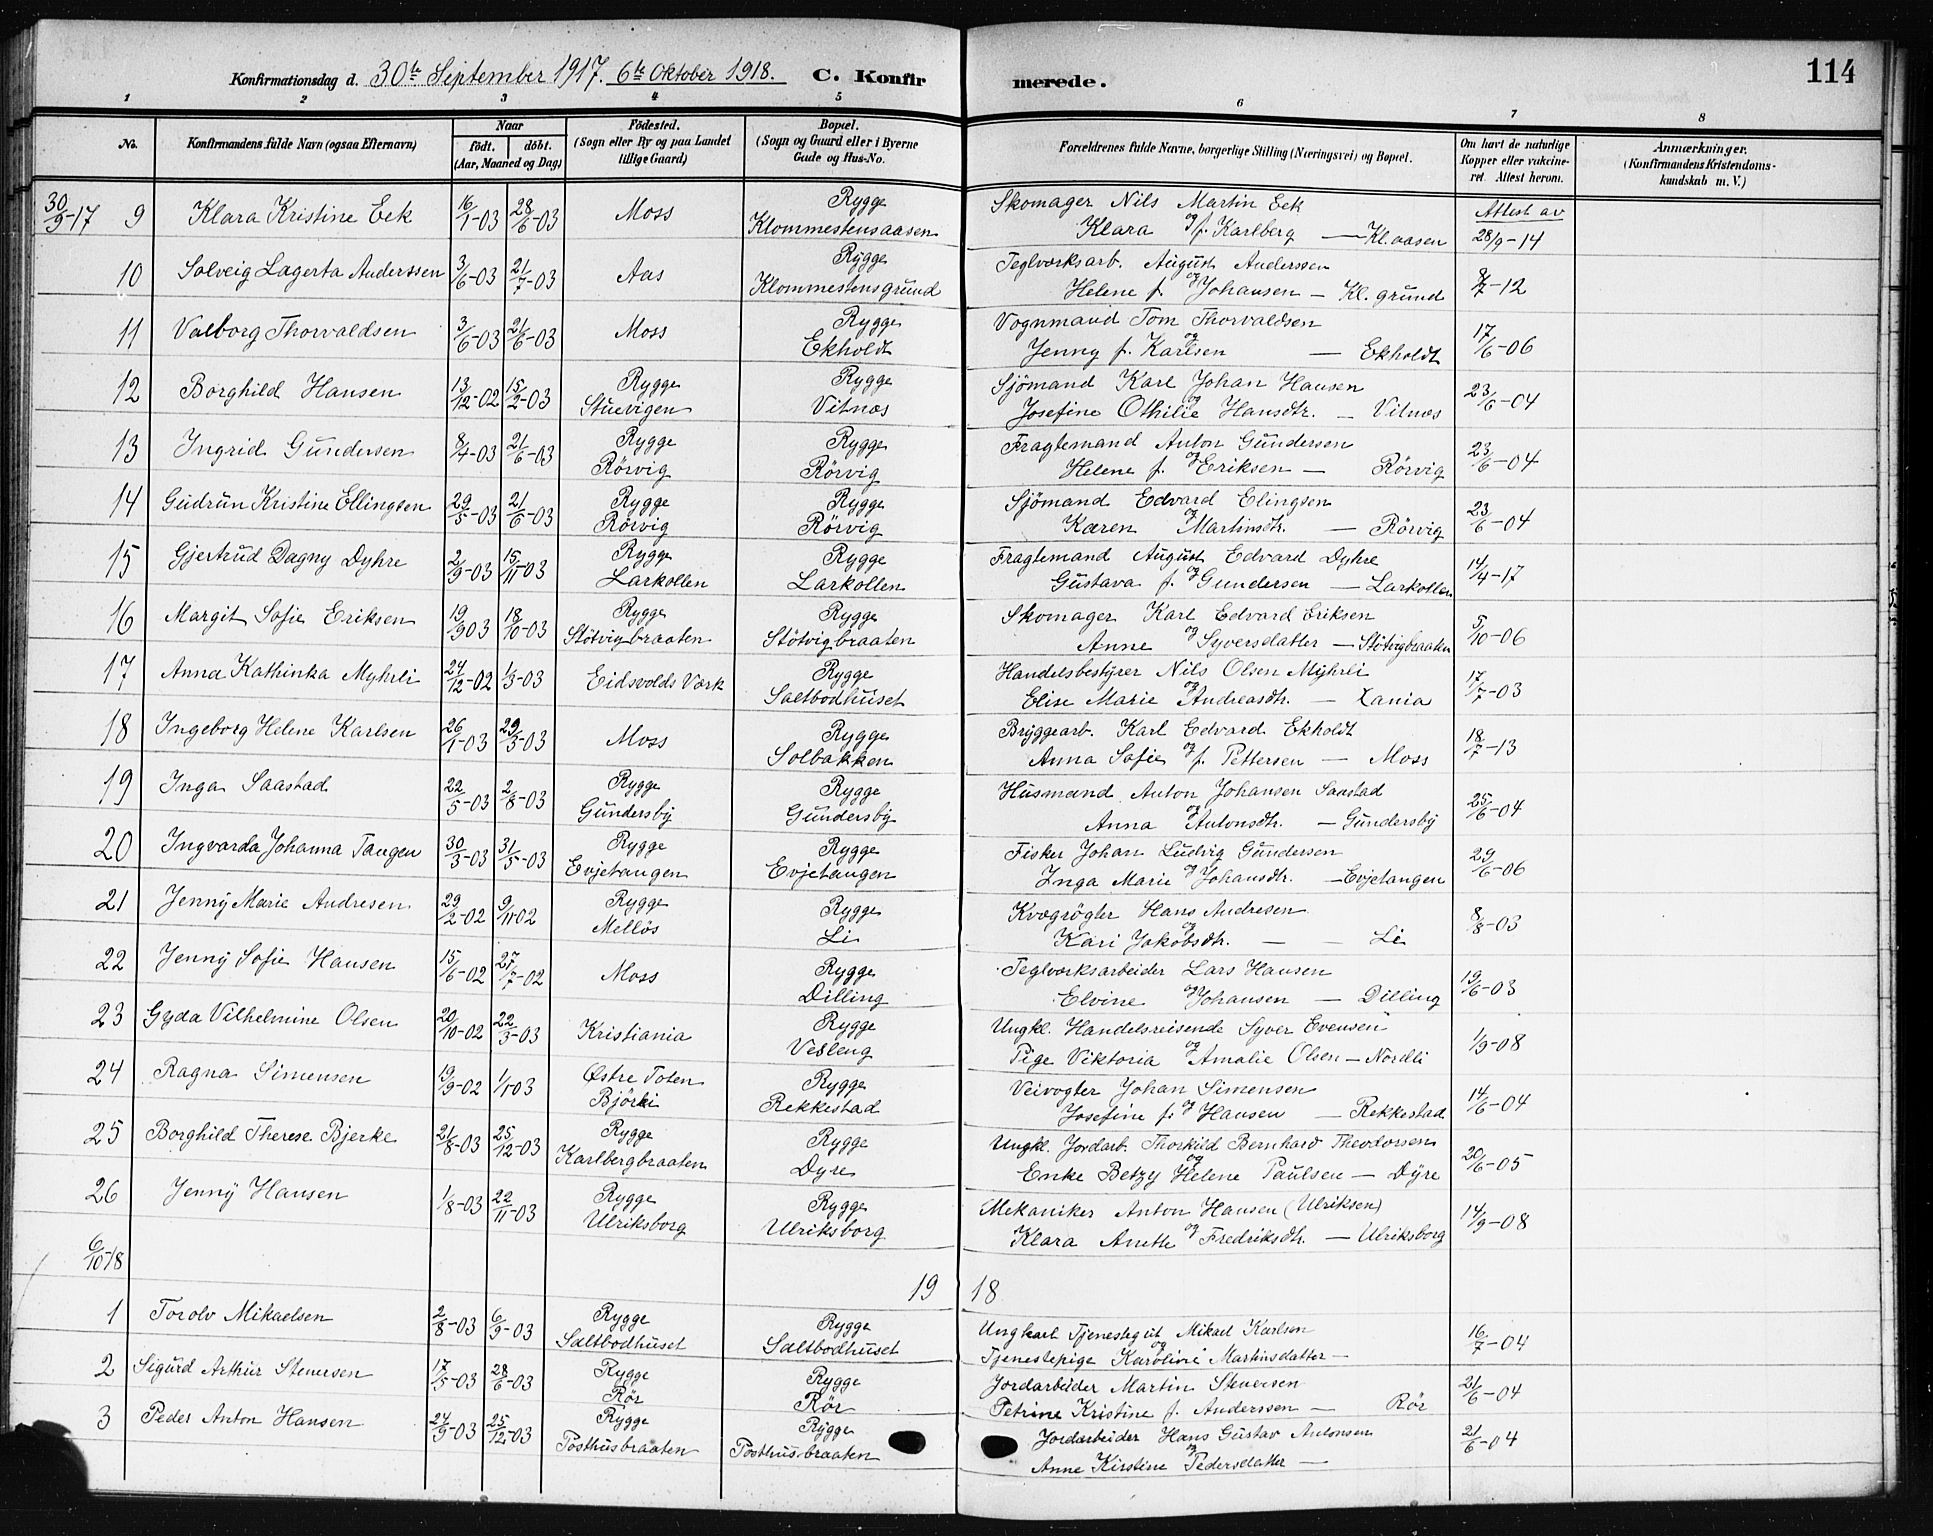 114
Konfirmationsdag d. 30te September 1917. 6te Oktober 1918. C. Konfirmerede.
1 2 3 4 5 6 7 8
No. Konfirmandens fulde Navn (ogsaa Efternavn) Naar født. døbt. (Aar, Maaned og Dag) Fødested. (Sogn eller By og paa Landet tillige Gaard) Bopæl. (Sogn og Gaard eller i Byerne Gade og Hus-No. Forældrenes fulde Navne, borgerlige Stilling (Næringsvei) og Bopæl. Om havt de naturlige Kopper eller vakcineret. Attest herom. Anmærkninger. (Konfirmandens Kristendomskundskab m. V.)
30/9-17 9 Klara Kristine Eek 16/1-03 28/6-03 Moss Rygge Klommestensaasen Skomager Nils Martin Eek og Klara f. Karlberg — Kl.aasen Attest av 28/9-14
10 Solveig Lagerta Anderssen 3/6-03 21/7-03 Aas Rygge Klommestensgrund Teglværksarb. August Anderssen og Helene f. Johansen — Kl. grund 8/7-12
11 Valborg Thorvaldsen 3/6-03 21/6-03 Moss Rygge Ekholdt Vognmand Tom Thorvaldsen og Jenny f. Karlsen — Ekholdt 17/6-06
12 Borghild Hansen 13/12-02 15/2-03 Rygge Stuevigen Rygge Vitnæs Sjömand Karl Johan Hansen og Josefine Othilie Hansdtr. — Vitnæs 23/6-04
13 Ingrid Gundersen 8/4-03 21/6-03 Rygge Rörvig Rygge Rörvig Fragtemand Anton Gundersen og Helene f. Eriksen — Rörvig 23/6-04
14 Gudrun Kristine Ellingsen 29/5-03 21/6-03 Rygge Rörvig Rygge Rörvig Sjömand Edvard Elingsen og Karen Martinsdtr. — Rörvig 23/6-04
15 Gjertrud Dagny Dyhre 2/9-03 15/11-03 Rygge Larkollen Rygge Larkollen Fragtemand August Edvard Dyhre og Gustava f. Gundersen — Larkollen 14/4-17
16 Margit Sofie Eriksen 19/9 03 18/10-03 Rygge Stötvigbraaten Rygge Stötvigbraaten Skomager Karl Edvard Eriksen og Anne Syversdatter — Stötvigbraaten 5/10-06
17 Anna Kathinka Myhrli 24/12-02 1/3-03 Eidsvolds Værk Rygge Saltbodhuset Handelsbestyrer Nils Olsen Myhrli og Elise Marie Andreasdtr. — Xania 17/7-03
18 Ingeborg Helene Karlsen 26/1-03 29/3-03 Moss Rygge Solbakken Bryggearb. Karl Edvard Ekholdt og Anna Sofie f. Pettersen — Moss 18/7-13
19 Inga Saastad 22/5-03 2/8-03 Rygge Gundersby Rygge Gundersby Husmand Anton Johansen Saastad og Anna Antonsdtr. — Gundersby 25/6-04
20 Ingvarda Johanna Tangen 30/3-03 31/5-03 Rygge Evjetangen Rygge Evjetangen Fisker Johan Ludvig Gundersen og Inga Marie Johansdtr. — Evjetangen 29/6-06
21 Jenny Marie Andresen 29/2-02 9/11 02 Rygge Mellös Rygge Li Kvægrögter Hans Andresen og Kari Jakobsdtr. — — Li 8/8-03
22 Jenny Sofie Hansen 15/6-02 27/7-02 Moss Rygge Dilling Teglværksarbeider Lars Hansen og Elvine Johansen — Dilling 19/6-03
23 Gyda Vilhelmine Olsen 20/10-02 22/3-03 Kristiania Rygge Vesleng Ungkl. Handelsreisende Syver Evensen og Pige Viktoria Amalie Olsen — Nordli 1/9-08
24 Ragna Simensen 19/9-02 1/1 03 Østre Toten Björki Rygge Rekkestad Veivogter Johan Simensen og Josefine f. Hansen — Rekkestad 14/6-04
25 Borghild Therese Bjerke 21/8-03 25/12-03 Rygge Karlbergbraaten Rygge Dyre Ungkl. Jordarb. Thorkild Bernhard Theodorsen og Enke Betzy Helene Paulsen — Dyre 20/6-05
26 Jenny Hansen 1/8-03 22/11-03 Rygge Ulriksborg Rygge Ulriksborg Mekaniker Anton Hansen (Ulriksen) og Klara Anette Fredriksdtr. — Ulriksborg 14/9-08
6/10-18
19 18
1 Torolv Mikaelsen 2/8-03 6/9-03 Rygge Saltbodhuset Rygge Saltbodhuset Ungkarl Tjenestegut Mikael Karlsen og Tjenestepige Karoline Martinsdatter — 16/7-04
2 Sigurd Arthur Stenersen 17/5-03 28/6-03 Rygge Rör Rygge Rör Jordarbeider Martin Stenersen Petrine Kristine f. Anderssen — Rör 21/6-04
3 Peder Anton Hansen 24/9-03 25/12-03 Rygge Posthusbraaten Rygge Posthusbraaten Jordarbeider Hans Gustav Antonsen og Anne Kirstine Pedersdatter — 21/6-04